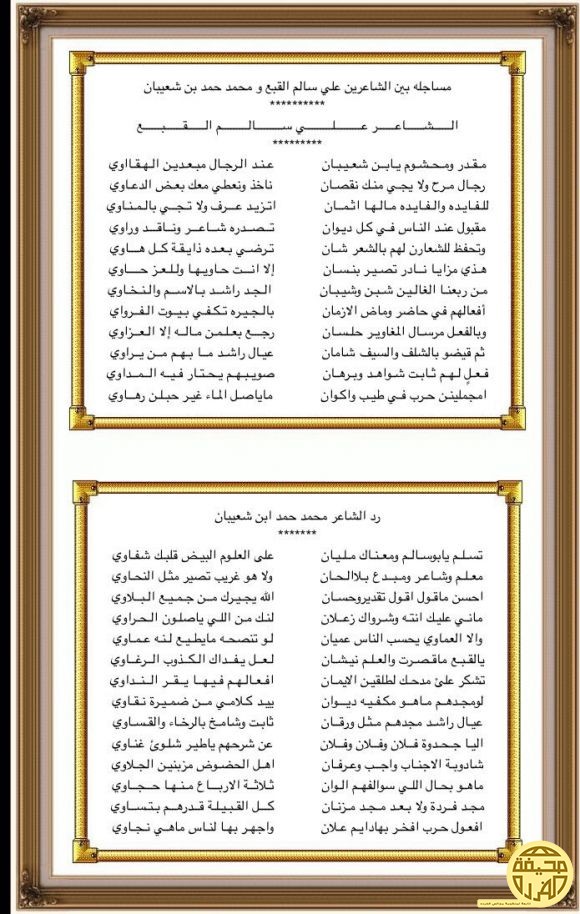 مساجله بين الشاعرين علي سالم القبع و محمد حمد بن شعيبان
**********
الـــشـــاعـــر عـــلـــي ســـالـــم الـــقـــبـــع
*********
مـقـدر ومحـشـوم يـابـن شعـيـبان عـند الرجال مبـعدين الهـقـاوي
رجال مرح ولا يجـي منك نقصان ناخذ ونعطي معك بعض الدعاوي
للفـايده والفـايده مـالـهـا اثـمـان اتـزيد عـرف ولا تـجـي بالمنـاوي
مقبول عند الناس في كل ديوان تـصـدره شـاعـر ونـاقـد وراوي
وتحفظ للشعارن لهم بالشعر شان ترضـي بعـده ذايـقـة كـل هـاوي
هـذي مزايا نـادر تصيـر بنسـان إلا انـت حاويـهـا وللـعز حـاوي
من ربعنا الغالين شبـن وشيبان الجد راشـد بـالاسـم والنخـاوي
أفعالهم في حاضر وماض الازمان بـالجيره تكـفـي بيوت الفـرواي
وبالفعل مرسال المغاوير حلسان رجـع بعلمـن مـالـه إلا العـزاوي
ثم قيضو بالشلف والسيف شامان عيال راشـد مـا بـهم مـن يـراوي
فـعلٍ لـهم ثـابت شـواهد وبرهـان صويبـهم يحتـار فيـه الـمـداوي
امجملينن حرب في طيب واكوان ماياصـل المـاء غير حبلن رهـاوي
رد الشاعر محمد حمد ابن شعيبان
*******
تسلـم يابوسـالـم ومعنـاك مليـان على العلوم البيـض قلبك شفـاوي
معلـم وشـاعر ومبـدع بـلاالحـان ولا هو غريب تصير مثل النحاوي
احسن ماقول اقول تقديروحسان الله يجيـرك مـن جميـع البـلاوي
مانـي عليك انته وشرواك زعـلان لنك من اللـي ياصلون الحـراوي
والا العماوي يحسب الناس عميان لو تنصحـه مايطيـع لنـه عمـاوي
يالقبـع ماقصـرت والعلـم نيشـان لعـل يفـداك الكـذوب الـرغـاوي
تشكر علئ مدحك لطلقين الايمان افعـالهم فيهـا يـقـر النـداوي
لومجدهـم ماهـو مكفيـه ديـوان بيد كلامـي مـن ضميـرة نقـاوي
عيال راشـد مجدهـم مثـل ورقـان ثابت وشامـخ بالرخـاء والقسـاوي
اليا جحـدوة فـلان وفـلان وفـلان عن شرحهم ياطير شلوئ غنـاوي
شادوبـة الاجنـاب واجـب وعرفـان اهل الحضـوض مزبنين الجـلاوي
ماهـو بحال اللـي سوالفهم الـوان ثـلاثـة الاربـاع منـهـا حـجـاوي
مجد فـردة ولا بعـد مجـد مـزنـان كـل القبيلـة قـدرهـم بتـسـاوي
افعول حرب افخر بهادايم عـلان واجهر بها لناس ماهـي نجـاوي
صحيفة